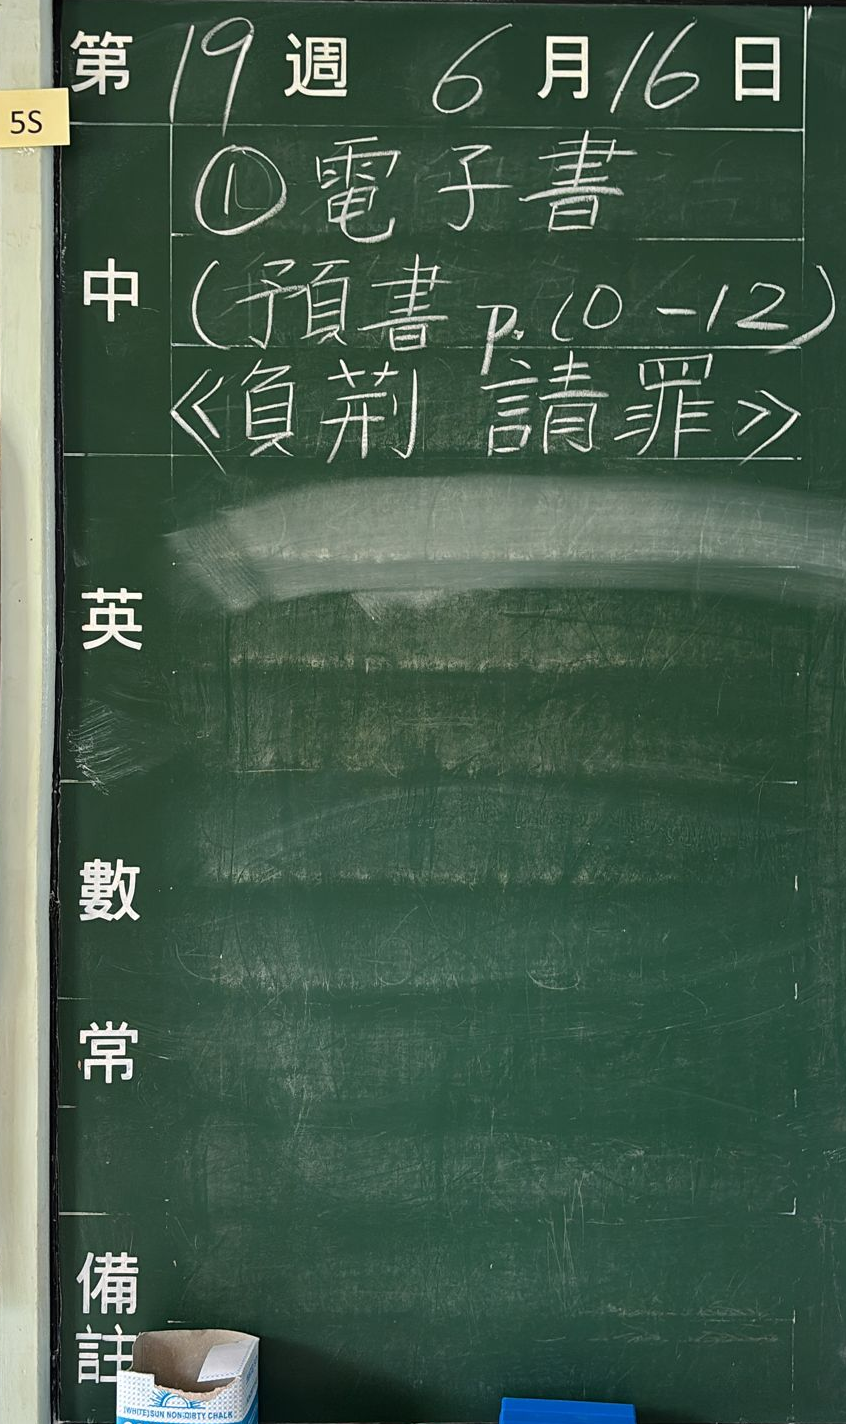 第19週 6月16日
5S
中
①電子書
(預書 p.10-12)
《負荊請罪》
英
數
常
備註
(WHITE)SUN NON-DIRTY CHALK